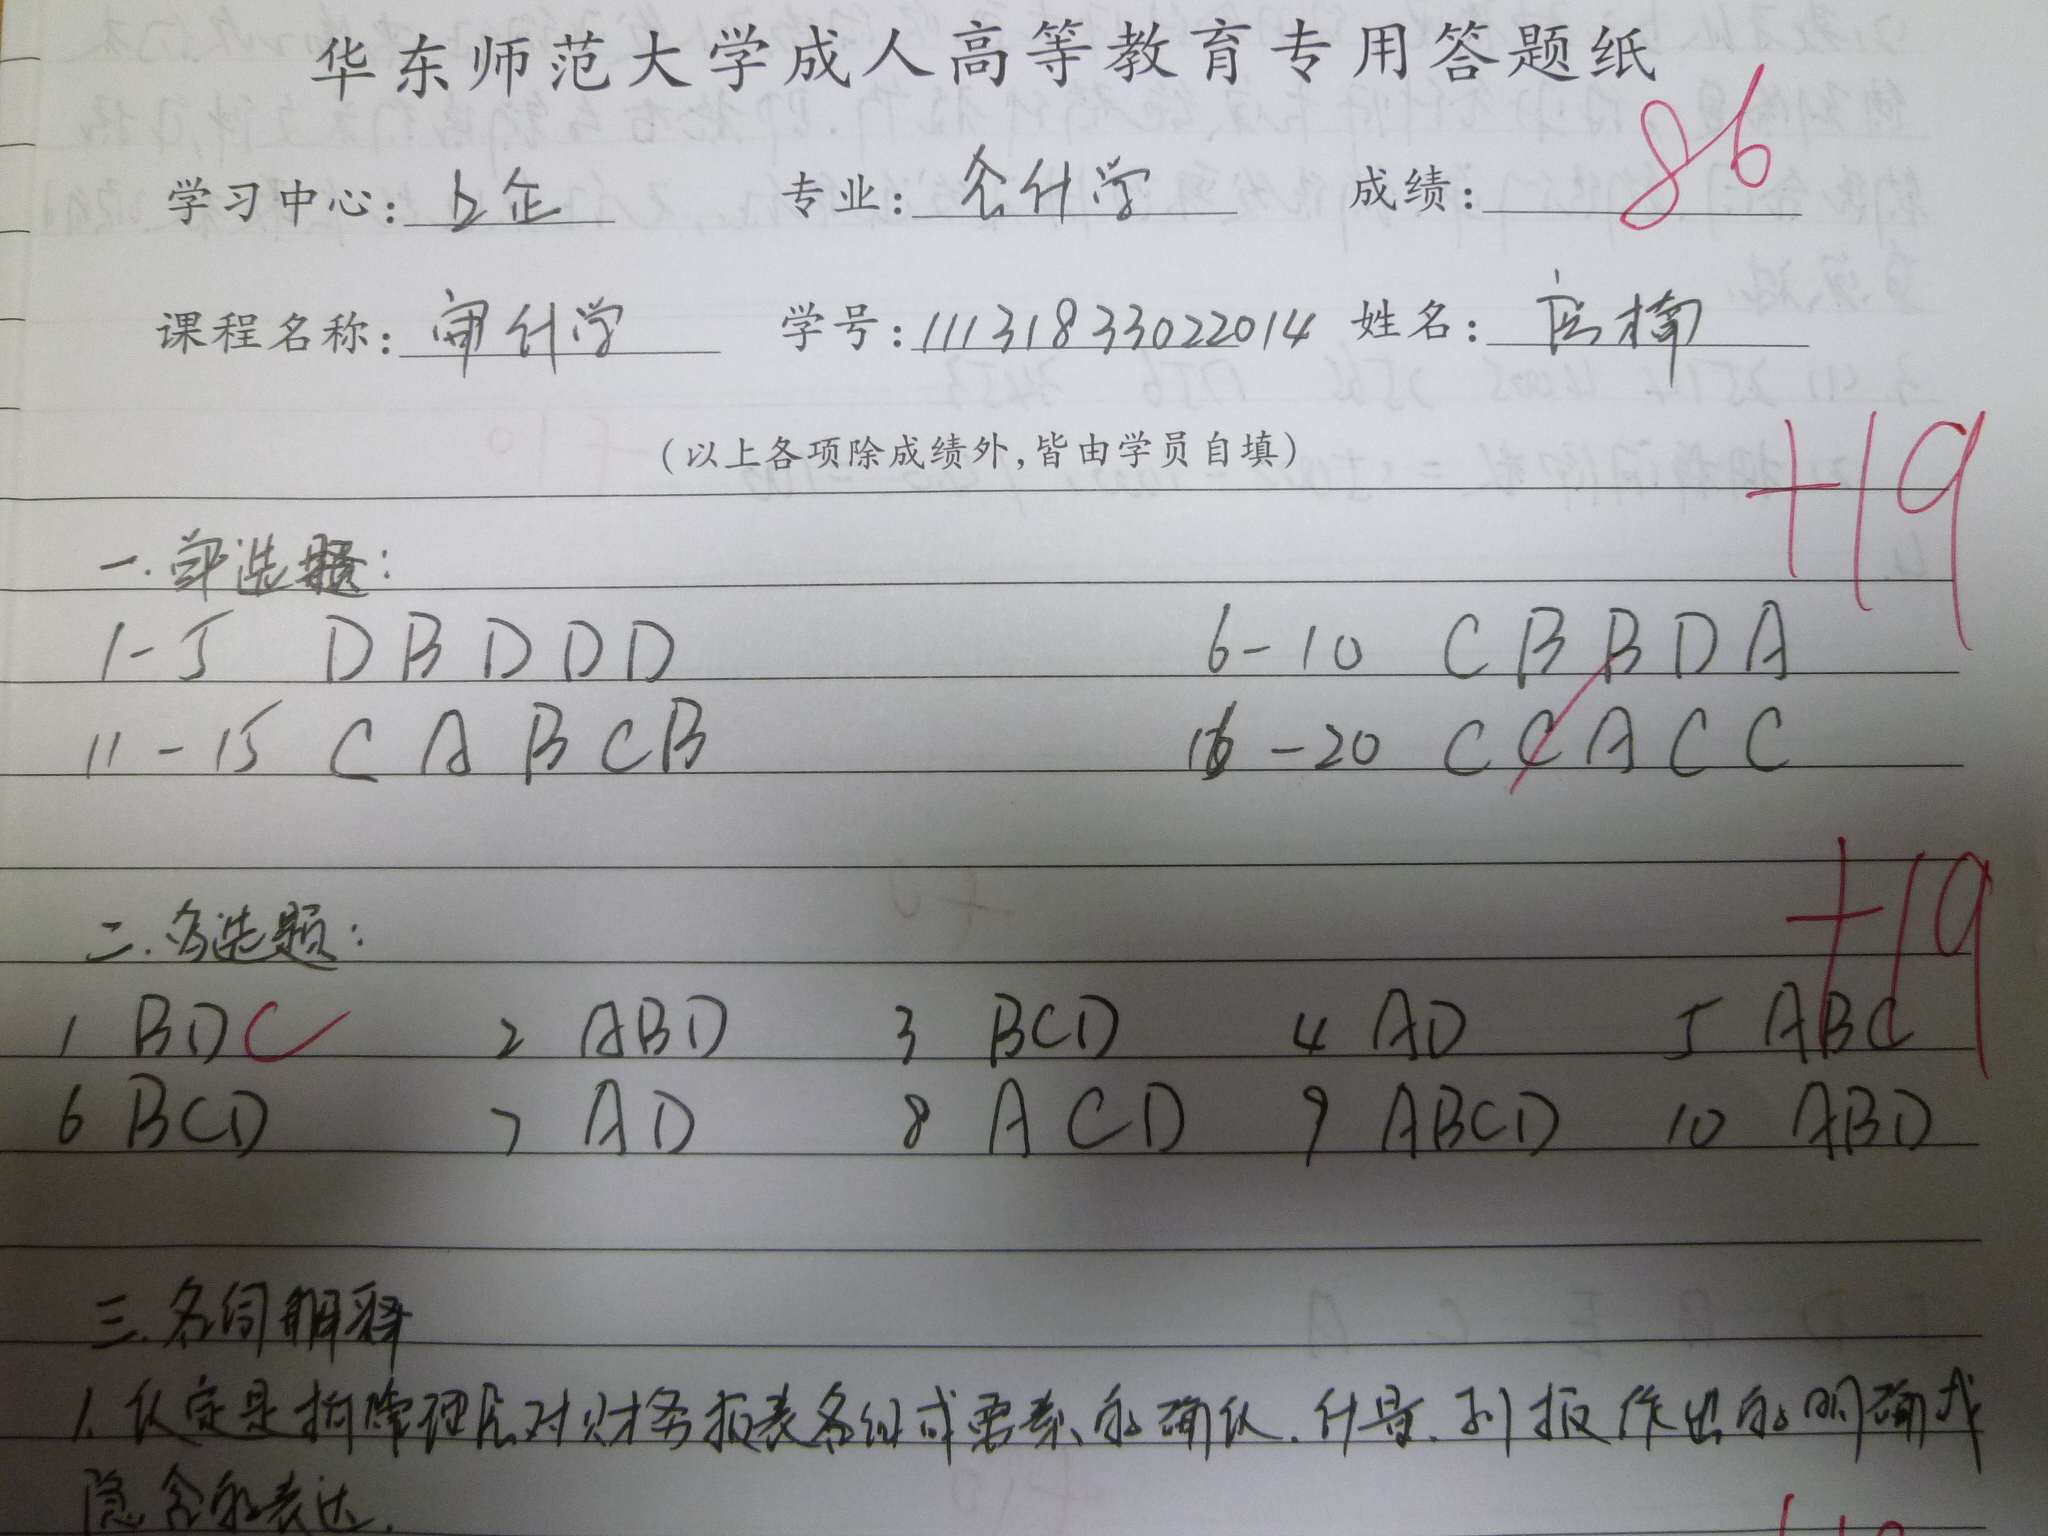 华东师范大学成人高等教育专用答题纸
学习中心: 上企 专业: 会计学 成绩: 86
课程名称: 审计学 学号: 11131833022014 姓名: 楠
(以上各项除成绩外,皆由学员自填)
+19
一.单选题:
1-5 D B D D D 6-10 C B B D A
11-15 C A B C B 16-20 C C A C C
+19
二.多选题:
1 BDC 2 ABD 3 BCD 4 AD 5 ABC
6 BCD 7 AD 8 ACD 9 ABCD 10 ABD
三.名词解释
1.认定是指管理层对财务报表各组成要素的确认.计量.列报作出的明确或
隐含的表达.